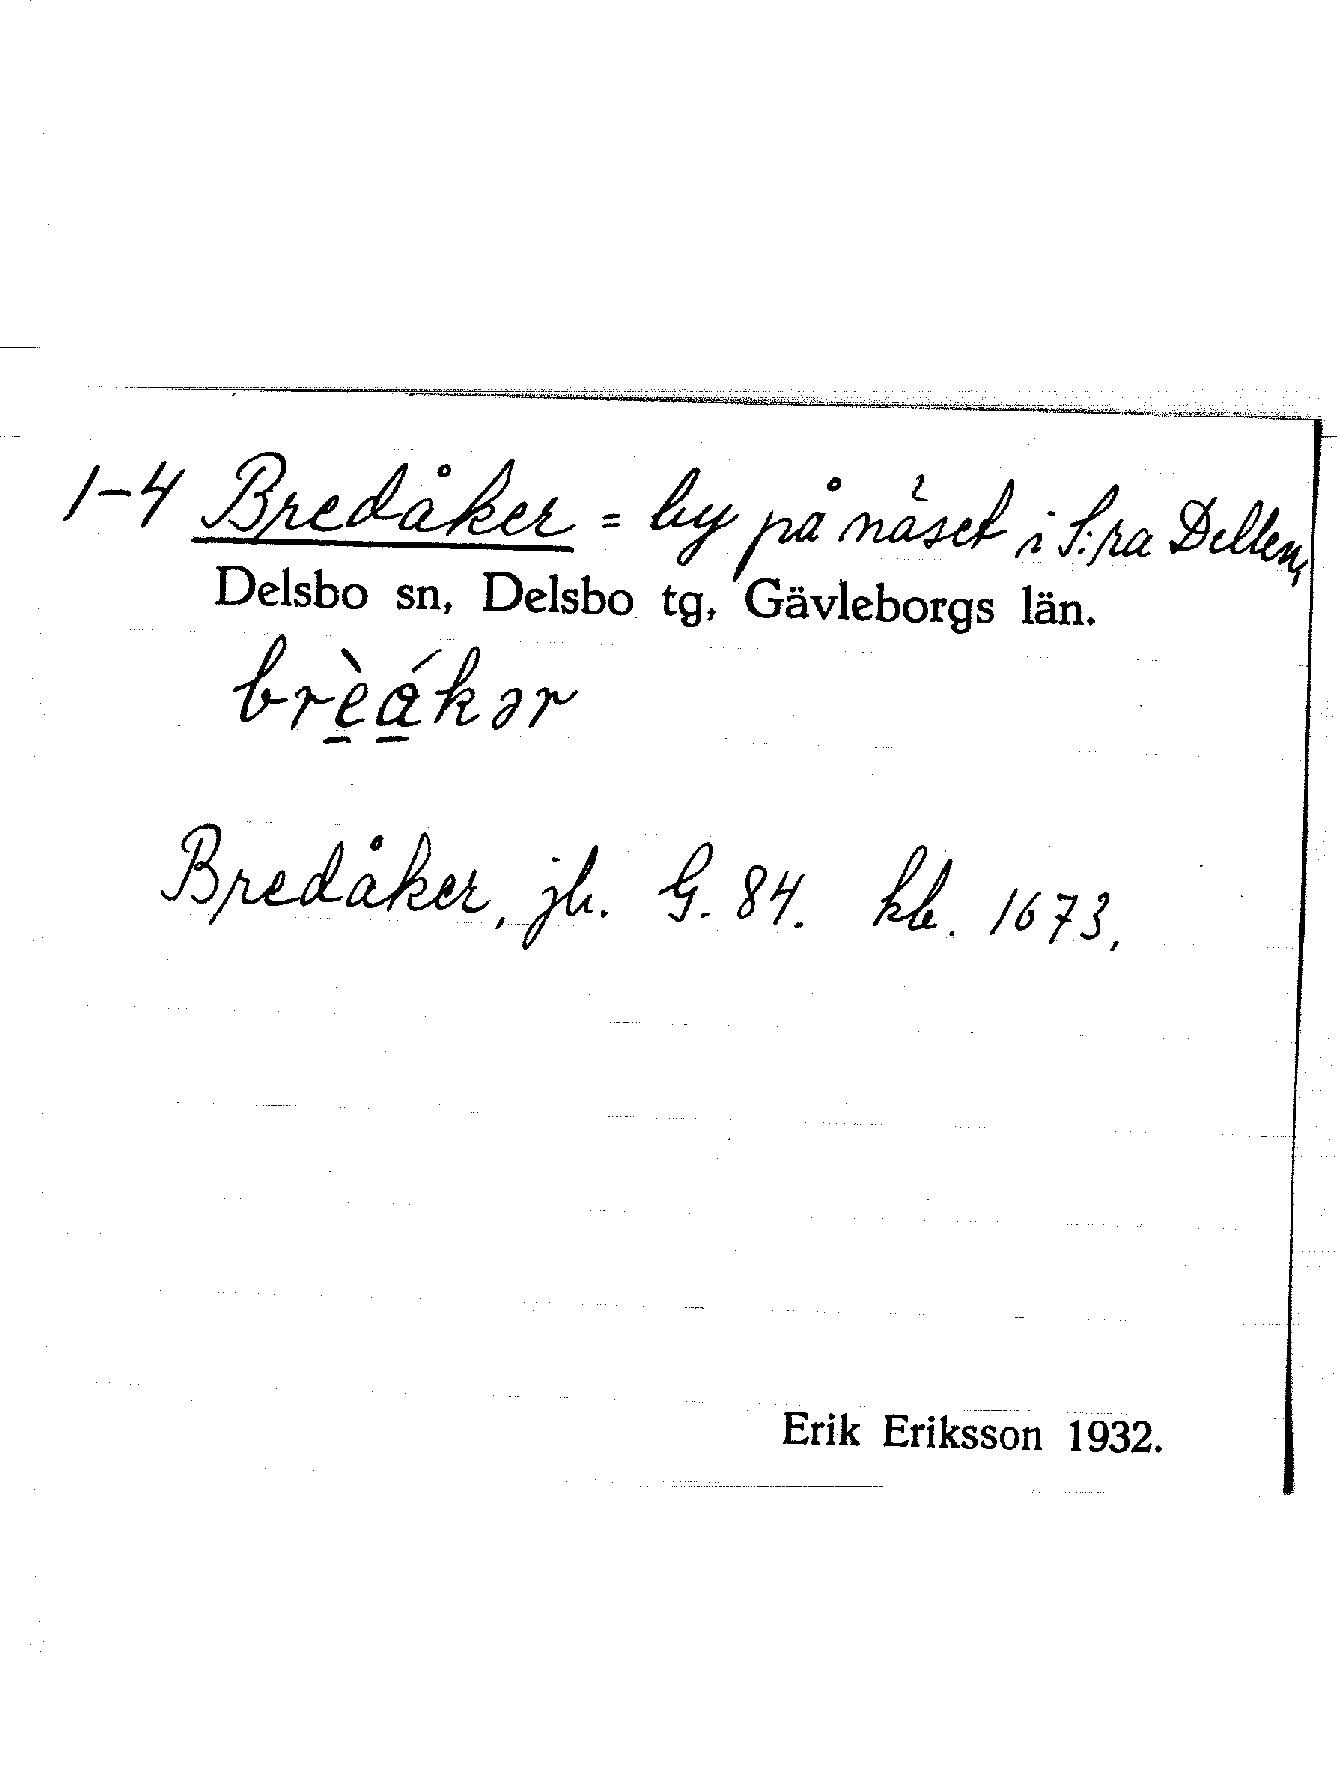 1-4 Bredåker = by på näset i S:ra Dellen,
Delsbo sn, Delsbo tg, Gävleborgs län.
brè̱á̱kər
Bredåker, jb. G. 84. kb. 1673,
Erik Eriksson 1932.